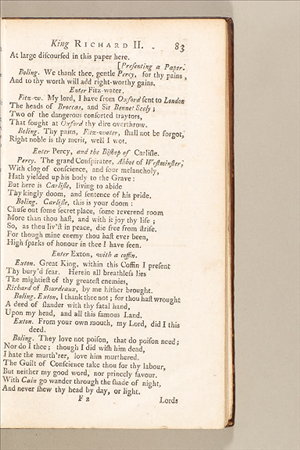 King RICHARD II. 83
At large discoursed in this paper here.
[Presenting a Paper.
Boling. We thank thee, gentle Percy, for thy pains,
And to thy worth will add right-worthy gains.
Enter Fitz-water.
Fitz-w. My lord, I have from Oxford sent to London
The heads of Broccas, and Sir Bennet Seely;
Two of the dangerous consorted traytors,
That sought at Oxford thy dire overthrow.
Boling. Thy pains, Fitz-water, shall not be forgot,
Right noble is thy merit, well I wot.
Enter Percy, and the Bishop of Carlisle.
Percy. The grand Conspirator, Abbot of Westminster,
With clog of conscience, and sour melancholy,
Hath yielded up his body to the Grave:
But here is Carlisle, living to abide
Thy kingly doom, and sentence of his pride.
Boling. Carlisle, this is your doom:
Chuse out some secret place, some reverend room
More than thou hast, and with it joy thy life;
So, as thou liv'd in peace, die free from strife.
For though mine enemy thou hast ever been,
High sparks of honour in thee I have seen.
Enter Exton, with a coffin.
Exton. Great King, within this Coffin I present
Thy bury'd fear. Herein all breathless lies
The mightiest of thy greatest enemies,
Richard of Bourdeaux, by me hither brought.
Boling. Exton, I thank thee not; for thou hast wrought
A deed of slander with thy fatal hand,
Upon my head, and all this famous Land.
Exton. From your own mouth, my Lord, did I this
deed.
Boling. They love not poison, that do poison need;
Nor do I thee; though I did wish him dead,
I hate the murth'rer, love him murthered.
The Guilt of Conscience take thou for thy labour,
But neither my good word, nor princely favour.
With Cain go wander through the shade of night,
And never shew thy head by day, or light.
F 2 Lords